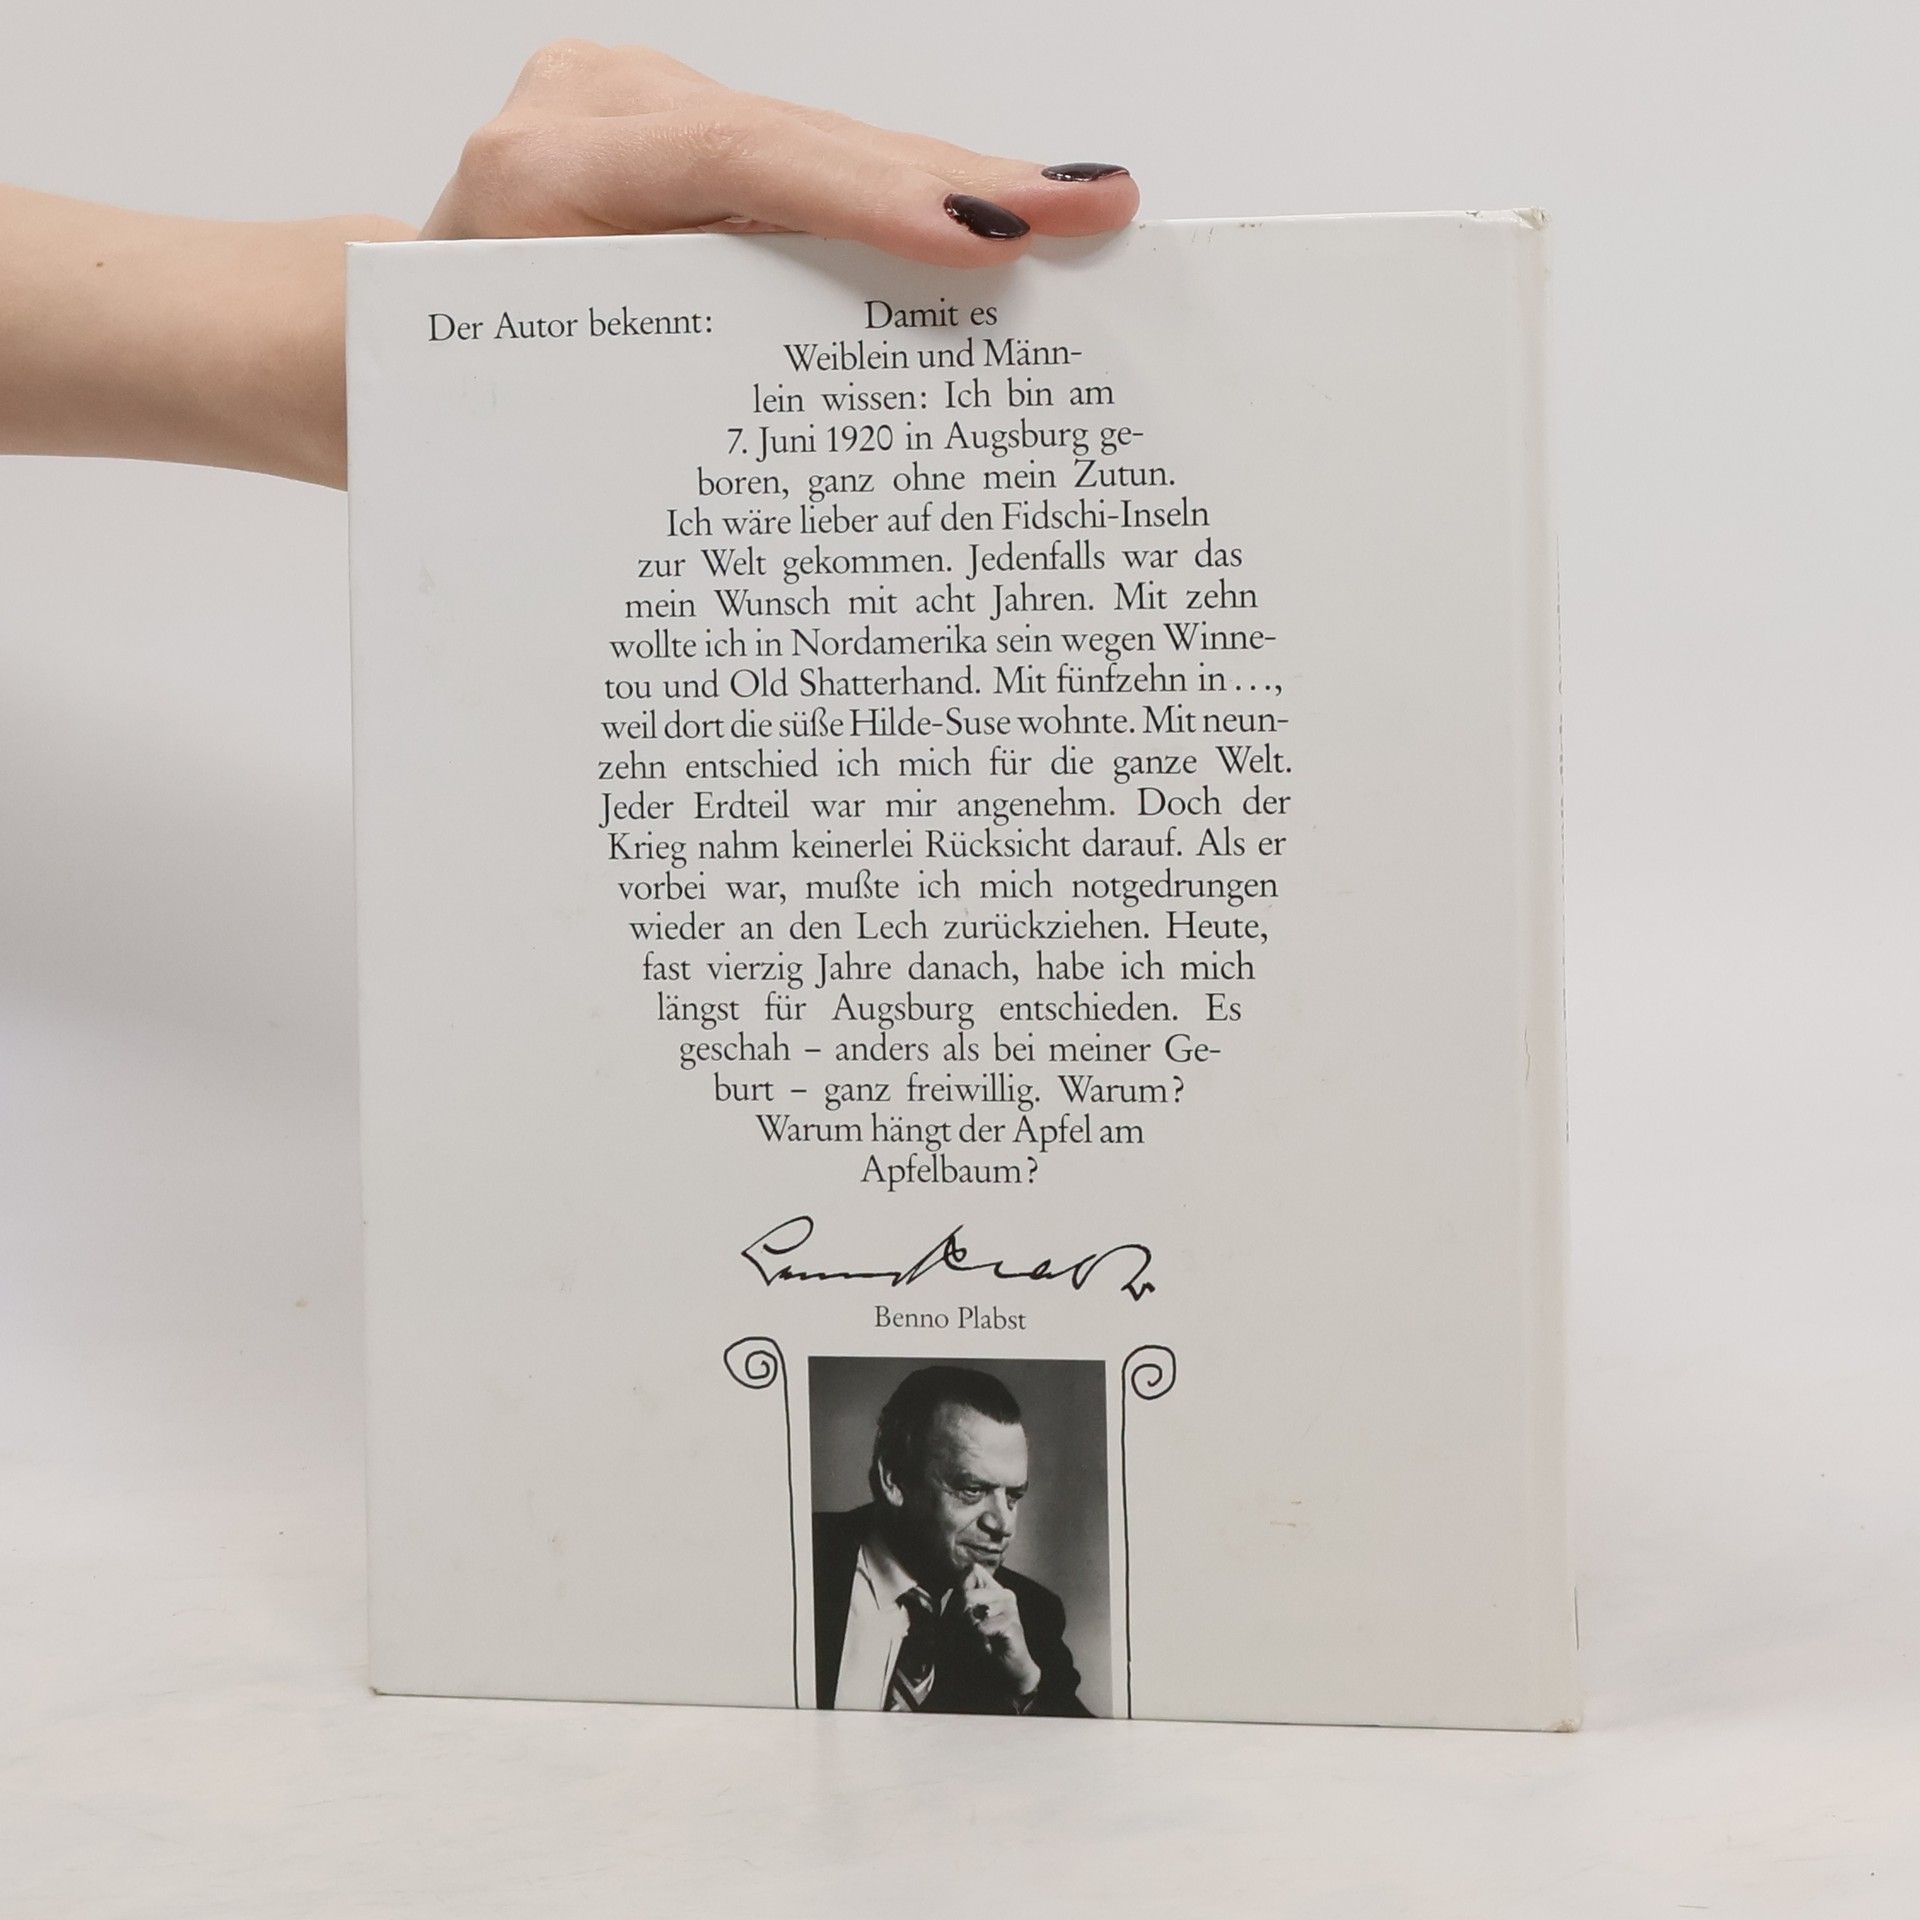 Der Autor bekennt:
Damit es
Weiblein und Männ-
lein wissen: Ich bin am
7. Juni 1920 in Augsburg ge-
boren, ganz ohne mein Zutun.
Ich wäre lieber auf den Fidschi-Inseln
zur Welt gekommen. Jedenfalls war das
mein Wunsch mit acht Jahren. Mit zehn
wollte ich in Nordamerika sein wegen Winne-
tou und Old Shatterhand. Mit fünfzehn in ...,
weil dort die süße Hilde-Suse wohnte. Mit neun-
zehn entschied ich mich für die ganze Welt.
Jeder Erdteil war mir angenehm. Doch der
Krieg nahm keinerlei Rücksicht darauf. Als er
vorbei war, mußte ich mich notgedrungen
wieder an den Lech zurückziehen. Heute,
fast vierzig Jahre danach, habe ich mich
längst für Augsburg entschieden. Es
geschah – anders als bei meiner Ge-
burt – ganz freiwillig. Warum?
Warum hängt der Apfel am
Apfelbaum?
Benno Plabst